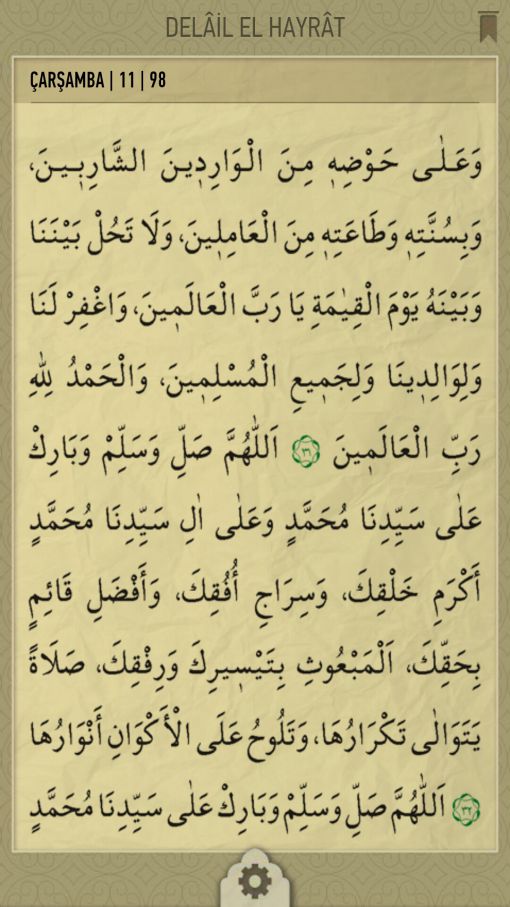 DELÂİL EL HAYRÂT
ÇARŞAMBA | 11 | 98
وَعَلٰى حَوْضِهٖ مِنَ الْوَارِدٖينَ الشَّارِبٖينَ،
وَبِسُنَّتِهٖ وَطَاعَتِهٖ مِنَ الْعَامِلٖينَ، وَلَا تَحُلْ بَيْنَنَا
وَبَيْنَهُ يَوْمَ الْقِيٰمَةِ يَا رَبَّ الْعَالَمٖينَ، وَاغْفِرْ لَنَا
وَلِوَالِدٖينَا وَلِجَمٖيعِ الْمُسْلِمٖينَ، وَالْحَمْدُ لِلّٰهِ
رَبِّ الْعَالَمٖينَ ٣١ اَللّٰهُمَّ صَلِّ وَسَلِّمْ وَبَارِكْ
عَلٰى سَيِّدِنَا مُحَمَّدٍ وَعَلٰى اٰلِ سَيِّدِنَا مُحَمَّدٍ
أَكْرَمِ خَلْقِكَ، وَسِرَاجِ أُفُقِكَ، وَأَفْضَلِ قَائِمٍ
بِحَقِّكَ، اَلْمَبْعُوثِ بِتَيْسٖيرِكَ وَرِفْقِكَ، صَلَاةً
يَتَوَالٰى تَكْرَارُهَا، وَتَلُوحُ عَلَى الْأَكْوَانِ أَنْوَارُهَا
٣٢ اَللّٰهُمَّ صَلِّ وَسَلِّمْ وَبَارِكْ عَلٰى سَيِّدِنَا مُحَمَّدٍ